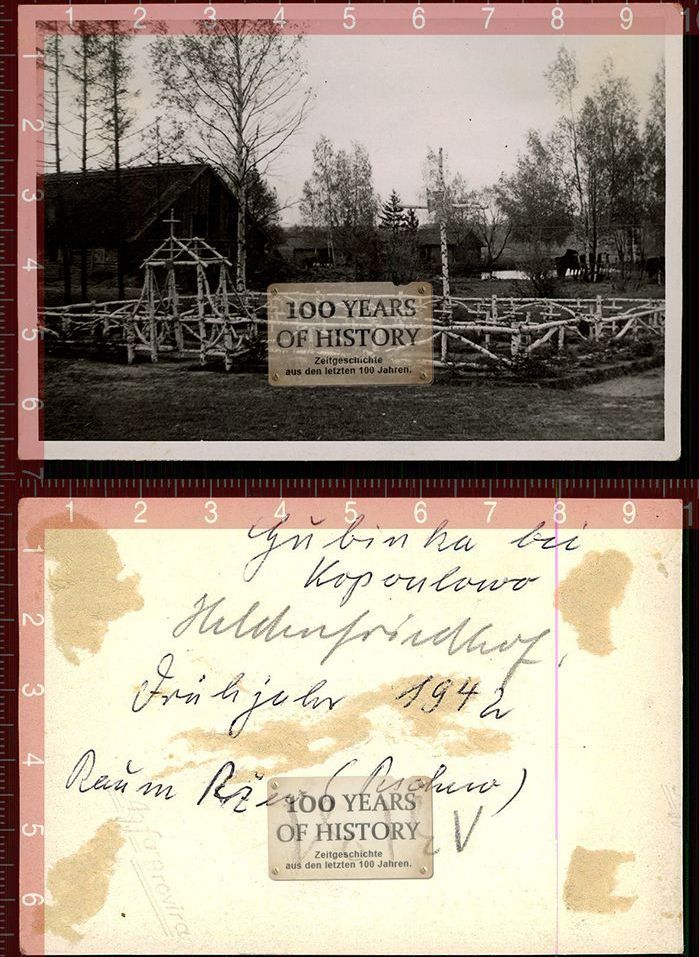 1 2 3 4 5 6 7 8 9
2
3
4
5
6
7
100 YEARS
OF HISTORY
Zeitgeschichte
aus den letzten 100 Jahren.
1 2 3 4 5 6 7 8 9
1
2
3
4
5
6
Gubinka bei
Heldenfriedhof,
Frühjahr 1942
Raum
100 YEARS
OF HISTORY
Zeitgeschichte
aus den letzten 100 Jahren.
V